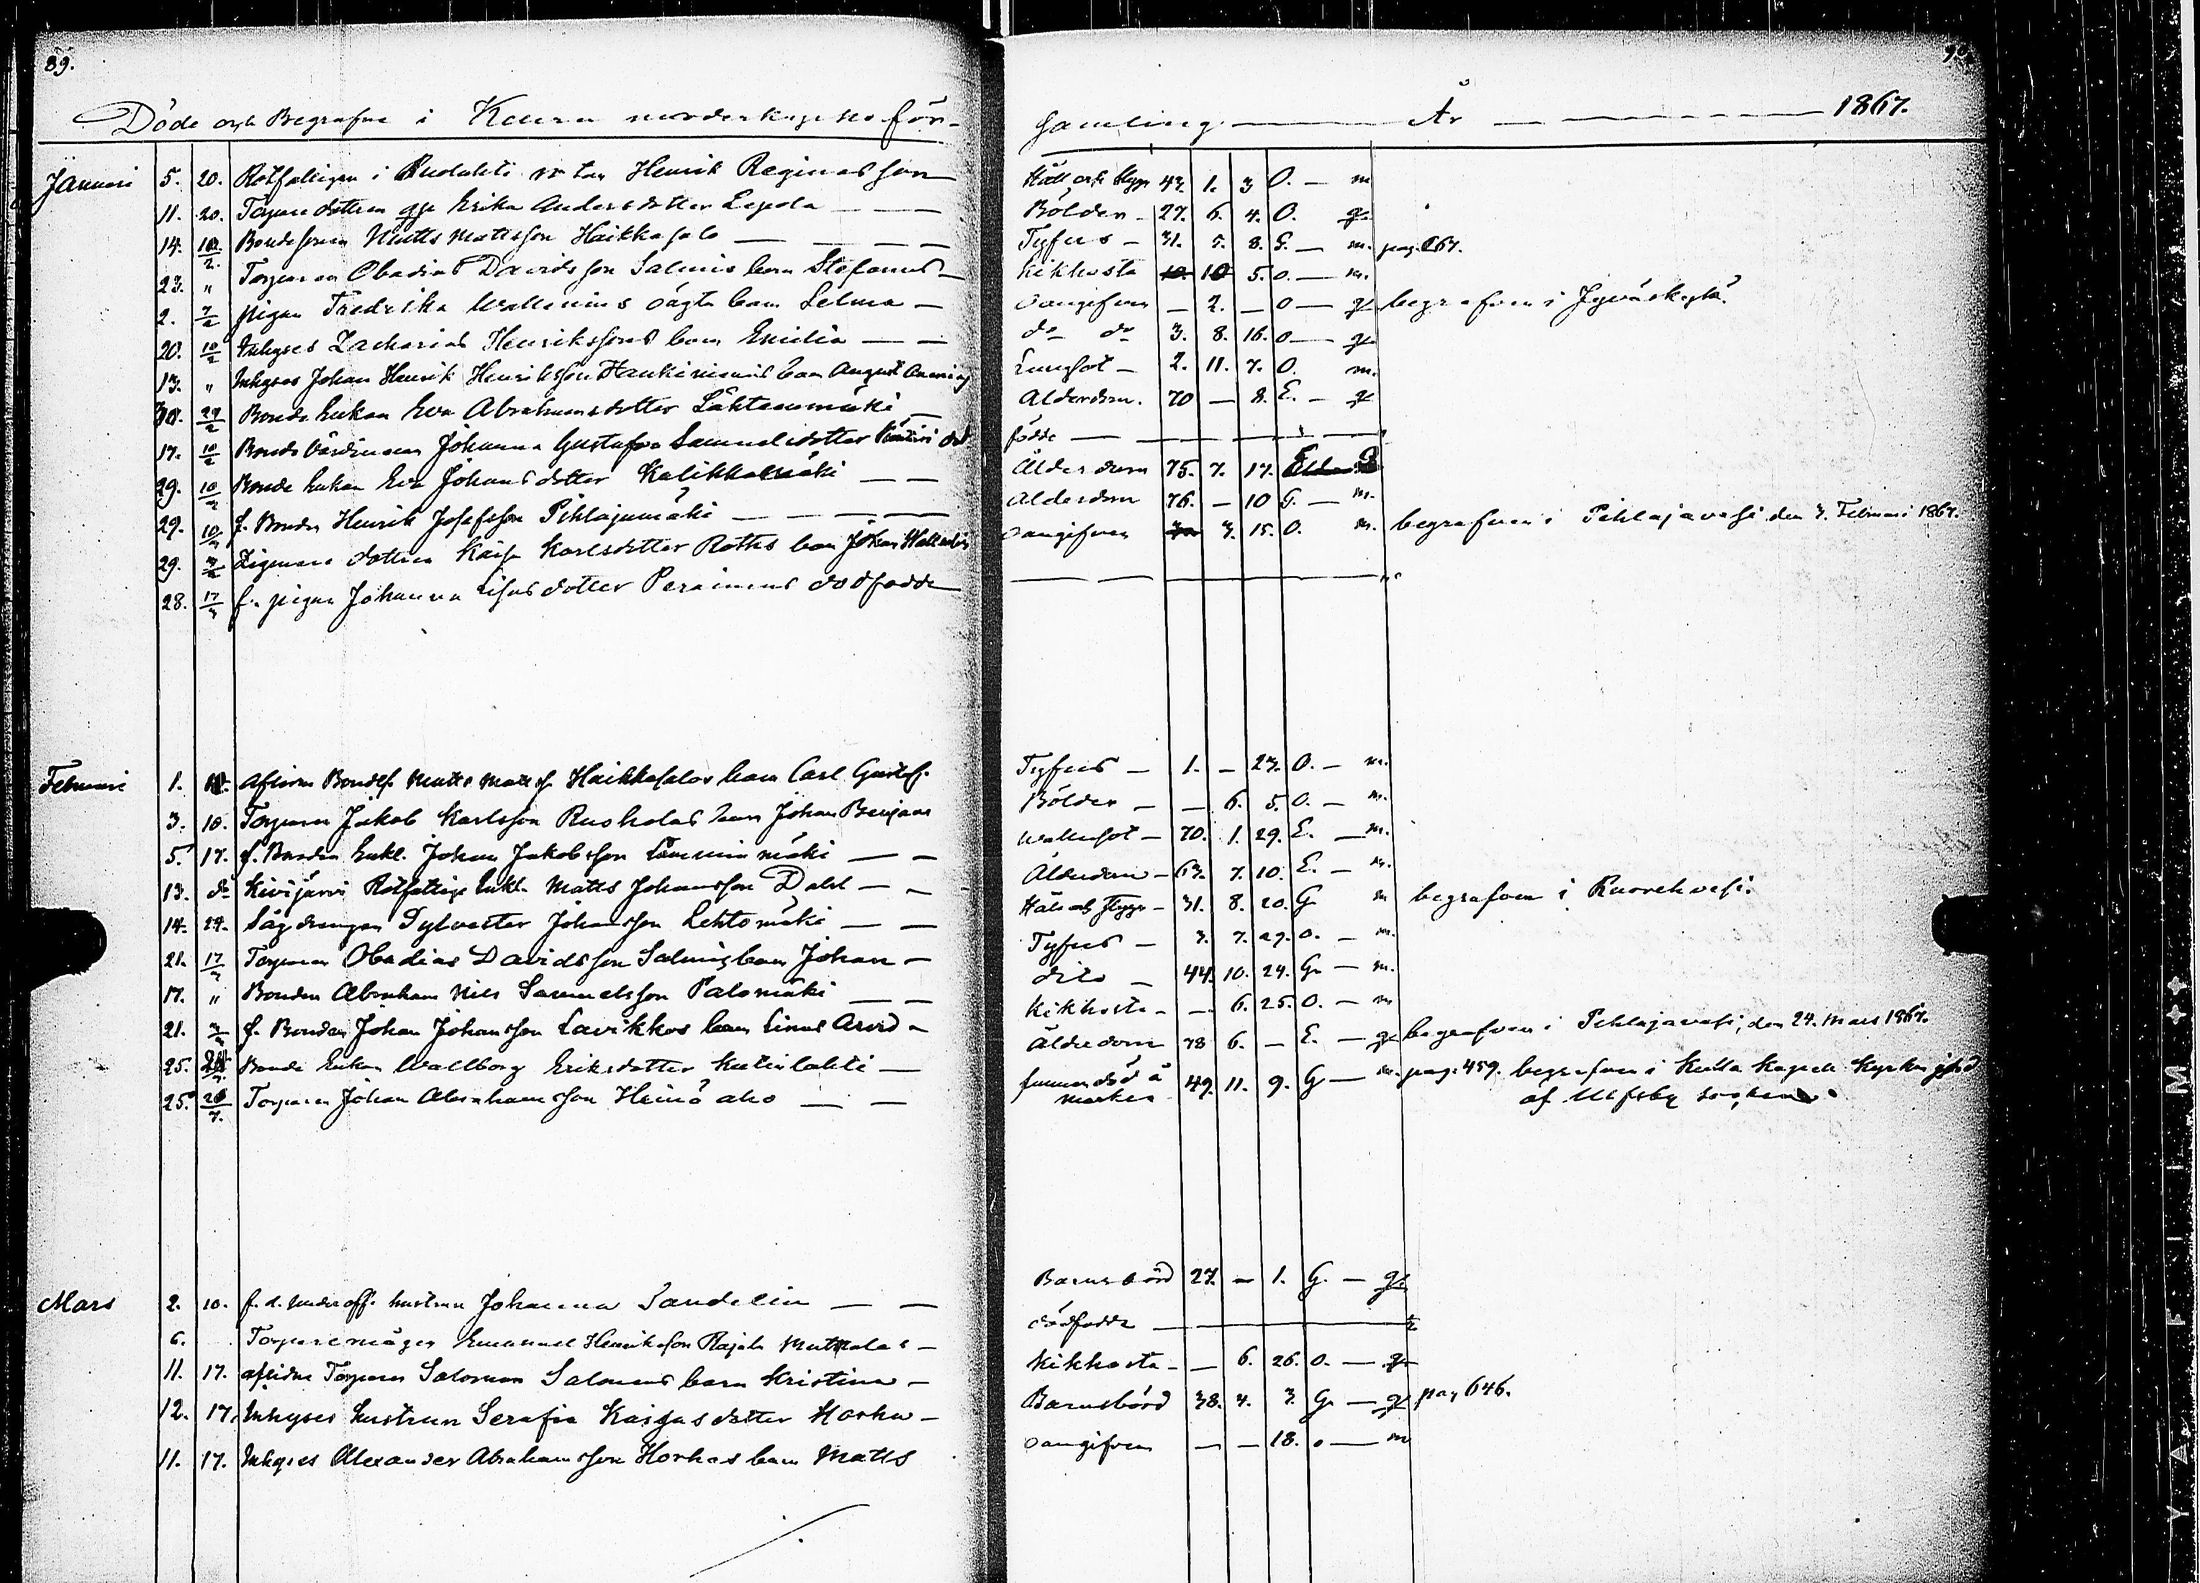 89.
Döde och Begrafne i Keuru moderkyrko för-
samling År 1867.
Januari 5. 20. Rotfattigen i Ruolahti Henrik Reginasson Håll och Stygn 43. 1. 3 O. — m
11. 20. Torparedottren qp Erika Andersdotter Lepola Bölder 27. 6. 4. O. q.
14. 10/2. Bondesonen Matts Mattsson Haikkasalo Tyfus 31. 5. 8. G. — m. pag. 267.
23. " Torparen Obadias Davidsson Salmis barn Stefanus Kikhosta 10 5. o. — m.
2. 7/2 pigan Fredrika Wallenius oägta barn Selma oangifven — 2. — o — q begrafven i Jyväskylä.
20. 10/2 Inhyses Zacharias Henrikssons barn Emilia do do 3. 8. 16. o — q
13. " Inhyses Johan Henrik Henriksson Hankiniemis barn August Lungsot 2. 11. 7. O. m.
30. 24/2 Bonde Enkan Eva Abrahamsdotter Lähteenmäki Alderdom. 70 — 8. E. — q
17. 10/2 Bonde Värdinnan Johanna Gustafva Samuelsdotter död födde
29. 10/2 Bonde Enkan Eva Johansdotter Kalikkamäki Ålderdom 75. 7. 17.
29. 10/2 f. Bonden Henrik Josefsson Pihlajamäki Alderdom 76. — 10 G. — m.
29. 3/2 dottren Kaisa Karlsdotter Roths barn Johan oangifven 3. 15. O. m. begrafven i Pihlajavesi den 3. Februari 1867.
28. 17/2 f. pigan Johanna Lisasdotter Peranens dödfödde
Februari 1. 10. Aflidne Bondes. Matts Matts. Haikkasalos barn Carl Gustaf. Tyfus — 1. — 23. O. — m.
3. 10. Torparen Jakob Karlsson Ruoholas barn Johan Benjam Bölder — — 6. 5. O. — m.
5. 17. f. Bonden Enkl. Johan Jakobsson Lamminmäki Wattusot — 70. 1. 29. E. — m.
13. do Kivijärvi Rotfattige Enkl. Matts Johansson Dahl Ålderdom — 63. 7. 10. E. — m.
14. 24. Sågdrengen Sylvester Johansson Lehtomäki Håll och Stygn — 31. 8. 20. G m begrafven i Kuorehvesi.
21. 17/3 Torparen Obadias Davidsson Salmis barn Johan Tyfus — 3. 7. 27. o. — m.
17. " Bonden Abraham Nils Samuelsson Palomäki dito — 44. 10. 24. G — m.
21. 3/3 f. Bonden Johan Johansson Lavikkos barn Linus Arvid Kikhosta — — 6. 25. O. — m
25. 24/3 Bonde Enkan Wallborg Eriksdotter Kutilahti Ålderdom 78 6. — E. — q begrafven i Pihlajavesi, den 24. Mars 1867.
25. 26/7. Torparen Johan Abrahamsson Heinäaho funnen död å marken 49. 11. 9. G — m. pag. 459. begrafven i Kulla Kapell Kyrko jord
af Ulfsby socken
Mars 2. 10. f. d. underoff. hustrun Johanna Sandelin Barnsbörd 27. — 1. G. — q
6. Torparemågen Emanuel Henriksson Rajala dödfödde
11. 17. aflidne Torparen Salomon Salomons barn Kristina Kikhosta — — 6. 26. O. — q
12. 17. Inhyses hustrun Serafia Kaisasdotter Horha Barnsbörd 38. 4. 3. G — q pag 646.
11. 17. Inhyses Alexander Abrahamsson Horhas barn Matts oangifven — — 18. o — m